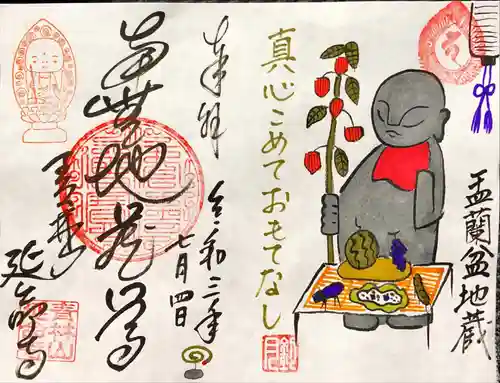 盂蘭盆地蔵
真心こめておもてなし
奉拝
令和三年
七月四日
南無地蔵尊
青林山
延命寺